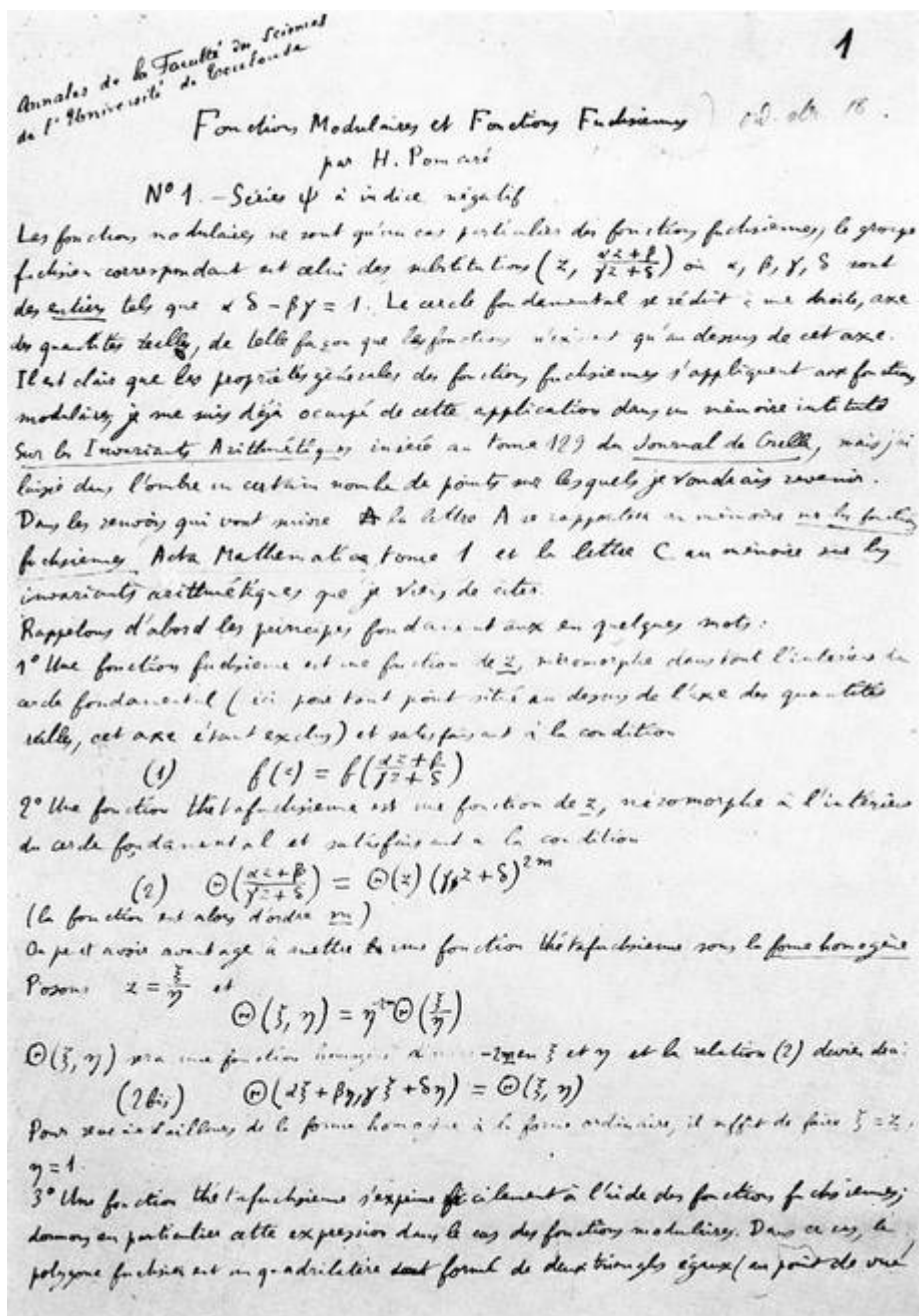 Annales de la Faculté des Sciences
de l'Université de Toulouse
1
Fonctions Modulaires et Fonctions Fuchsiennes
par H. Poincaré
N° 1. - Séries ψ à indice négatif
Les fonctions modulaires ne sont qu'un cas particulier des fonctions fuchsiennes, le groupe
fuchsien correspondant est celui des substitutions (z, (αz+β)/(γz+δ)) où α, β, γ, δ sont
des entiers tels que αδ - βγ = 1. Le cercle fondamental se réduit à une droite, axe
des quantités réelles, de telle façon que les fonctions n'existent qu'au dessus de cet axe.
Il est clair que les propriétés générales des fonctions fuchsiennes s'appliquent aux fonctions
modulaires, je me suis déjà occupé de cette application dans un mémoire intitulé
Sur les Invariants Arithmétiques inséré au tome 129 du Journal de Crelle, mais j'ai
laissé dans l'ombre un certain nombre de points sur lesquels je voudrais revenir.
Dans les renvois qui vont suivre la lettre A se rapportera au mémoire sur les fonctions
fuchsiennes Acta Mathematica, tome 1 et la lettre C au mémoire sur les
invariants arithmétiques que je viens de citer.
Rappelons d'abord les principes fondamentaux en quelques mots :
1° Une fonction fuchsienne est une fonction de z, méromorphe dans tout l'intérieur du
cercle fondamental (ici pour tout point situé au dessus de l'axe des quantités
réelles, cet axe étant exclus) et satisfaisant à la condition
(1) f(z) = f((αz+β)/(γz+δ))
2° Une fonction thétafuchsienne est une fonction de z, méromorphe à l'intérieur
du cercle fondamental et satisfaisant à la condition
(2) Θ((αz+β)/(γz+δ)) = Θ(z) (γz+δ)^2m
(la fonction est alors d'ordre m)
On peut avoir avantage à mettre une fonction thétafuchsienne sous la forme homogène
Posons z = ξ/η et
Θ(ξ, η) = η^-2m Θ(ξ/η)
Θ(ξ, η) sera une fonction homogène d'ordre -2m en ξ et η et la relation (2) deviendra :
(2bis) Θ(αξ+βη, γξ+δη) = Θ(ξ, η)
Pour revenir d'ailleurs de la forme homogène à la forme ordinaire, il suffit de faire ξ = z,
η = 1.
3° Une fonction thétafuchsienne s'exprime facilement à l'aide des fonctions fuchsiennes ;
donnons en particulier cette expression dans le cas des fonctions modulaires. Dans ce cas, le
polygone fuchsien est un quadrilatère formé de deux triangles égaux (au point de vue